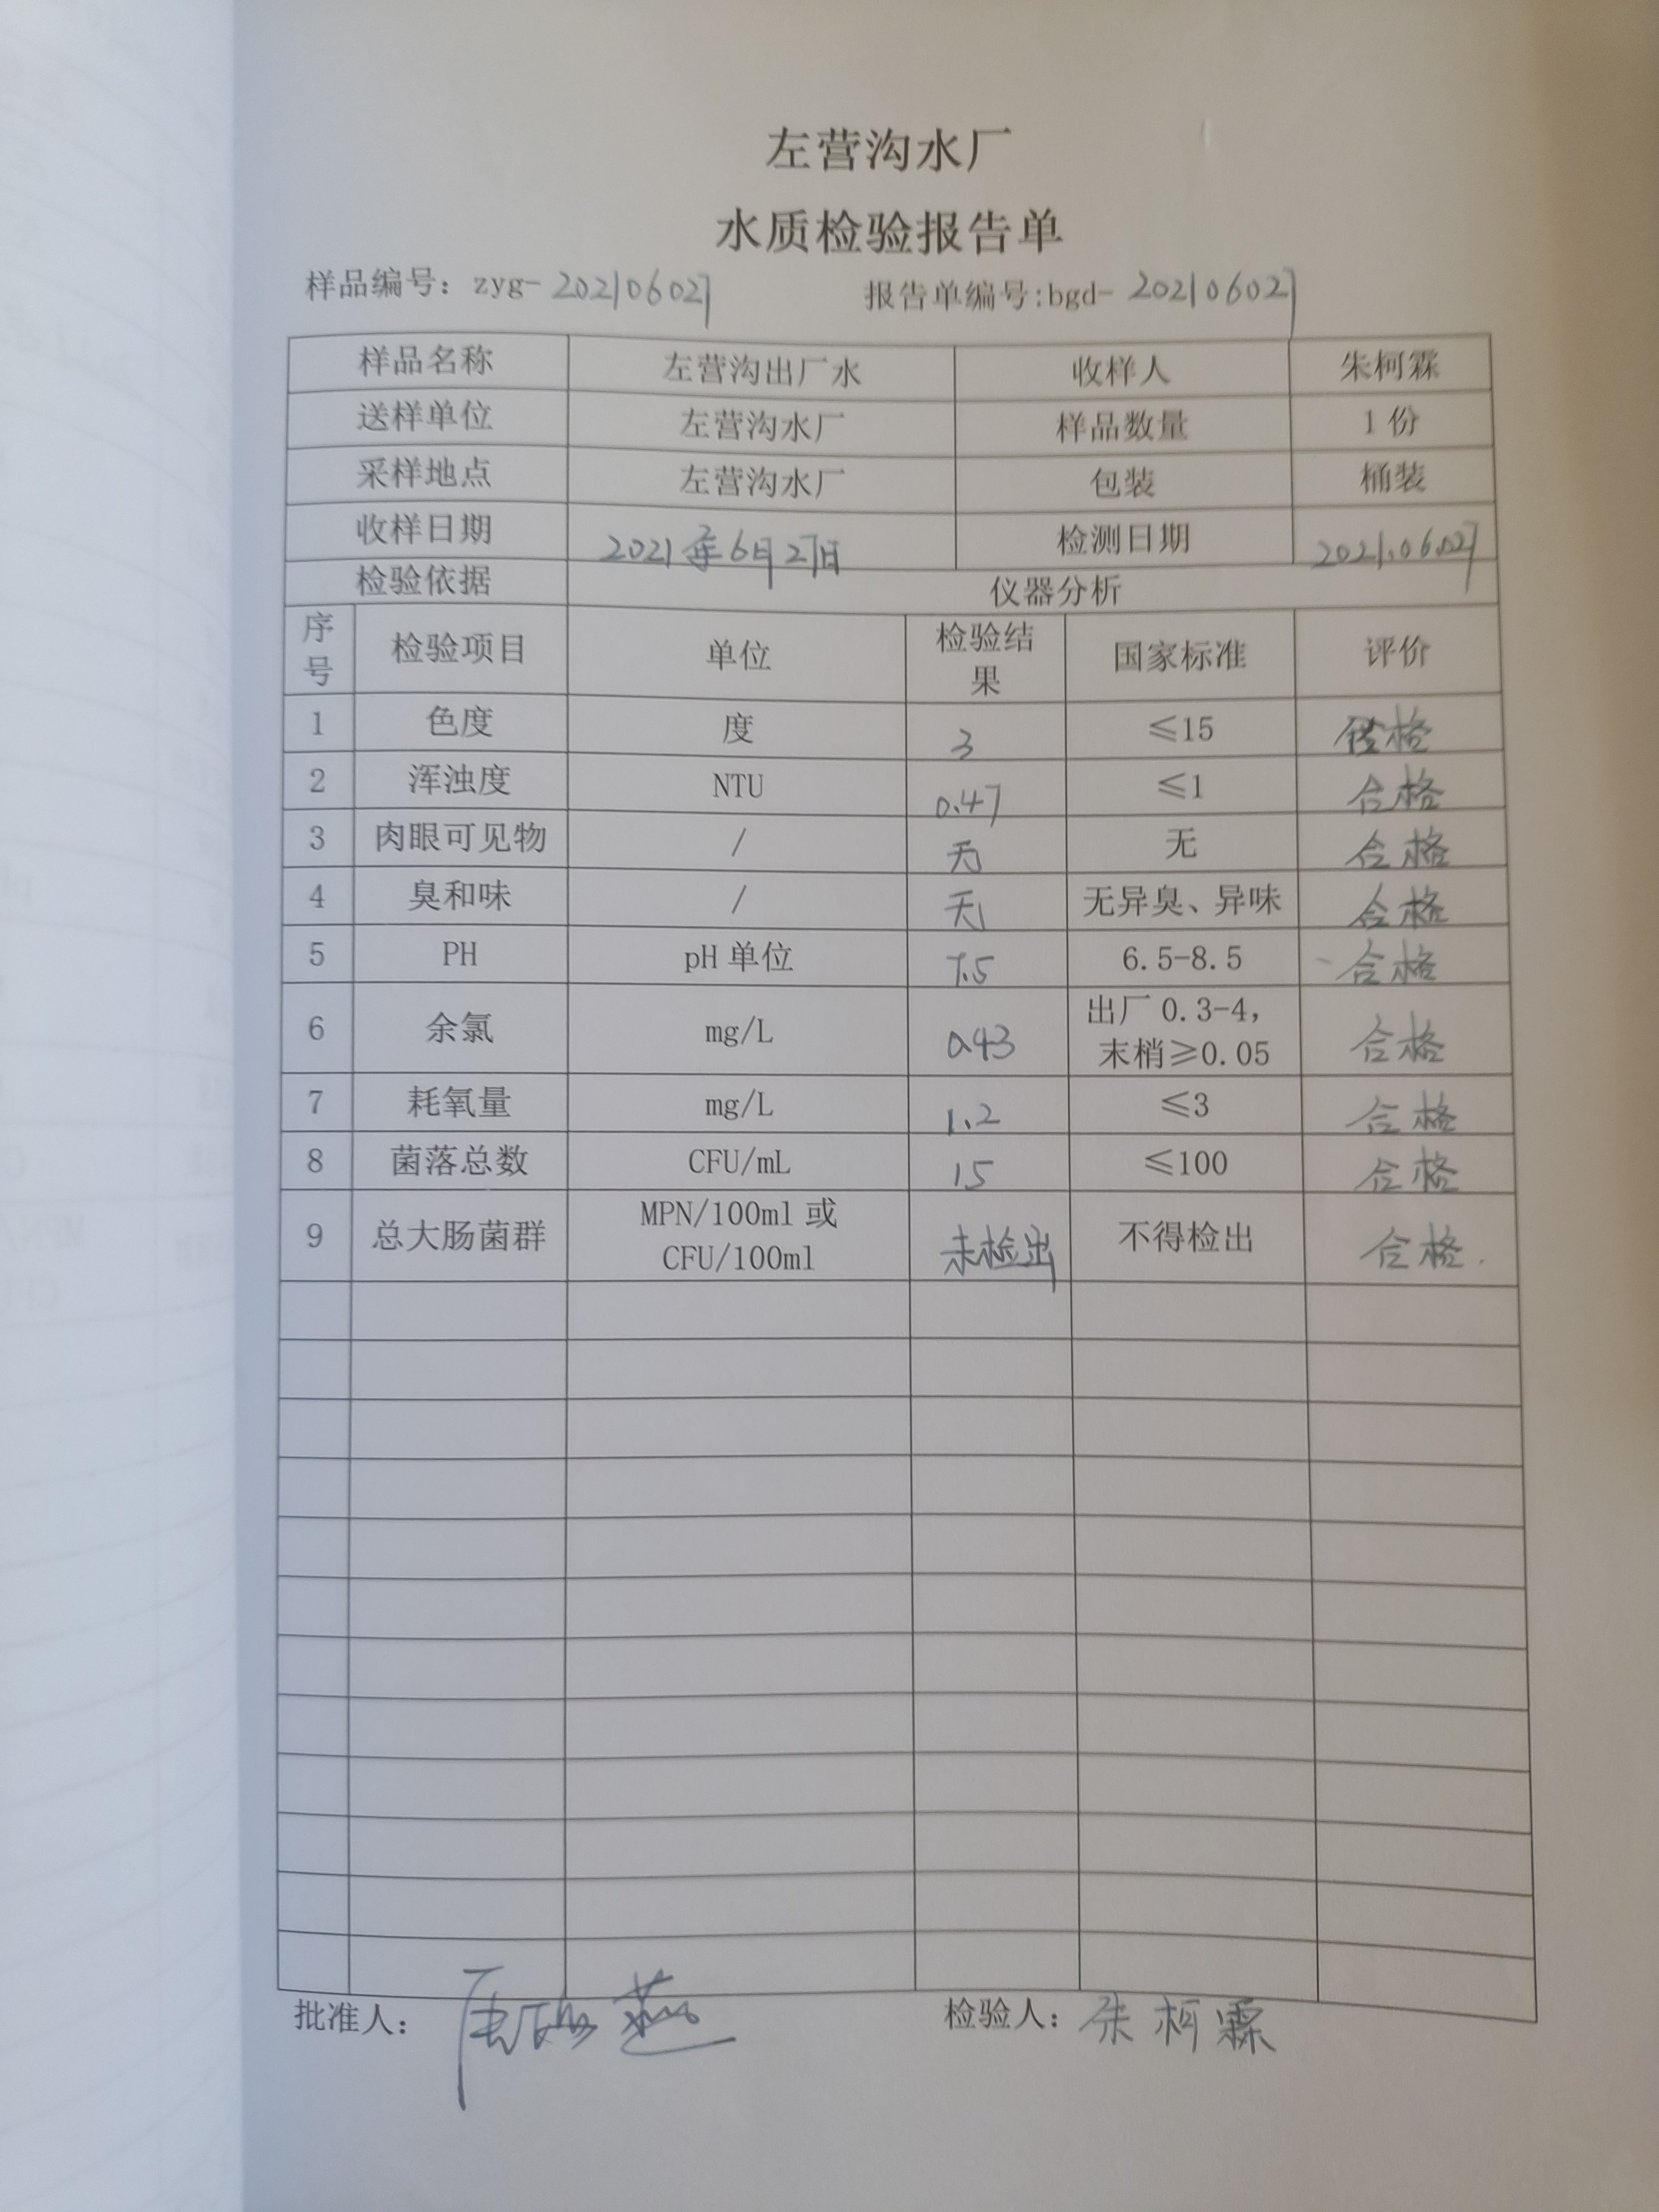 左营沟水厂
水质检验报告单
样品编号：zyg-20210627 报告单编号:bgd-20210627
样品名称 左营沟出厂水 收样人 朱柯霖
送样单位 左营沟水厂 样品数量 1份
采样地点 左营沟水厂 包装 桶装
收样日期 2021年6月27日 检测日期 2021.06.27
检验依据 仪器分析
序号 检验项目 单位 检验结果 国家标准 评价
1 色度 度 3 ≤15 合格
2 浑浊度 NTU 0.47 ≤1 合格
3 肉眼可见物 / 无 无 合格
4 臭和味 / 无 无异臭、异味 合格
5 PH pH单位 7.5 6.5-8.5 合格
6 余氯 mg/L 0.43 出厂0.3-4，末梢≥0.05 合格
7 耗氧量 mg/L 1.2 ≤3 合格
8 菌落总数 CFU/mL 15 ≤100 合格
9 总大肠菌群 MPN/100ml或CFU/100ml 未检出 不得检出 合格.
批准人： 检验人：朱柯霖